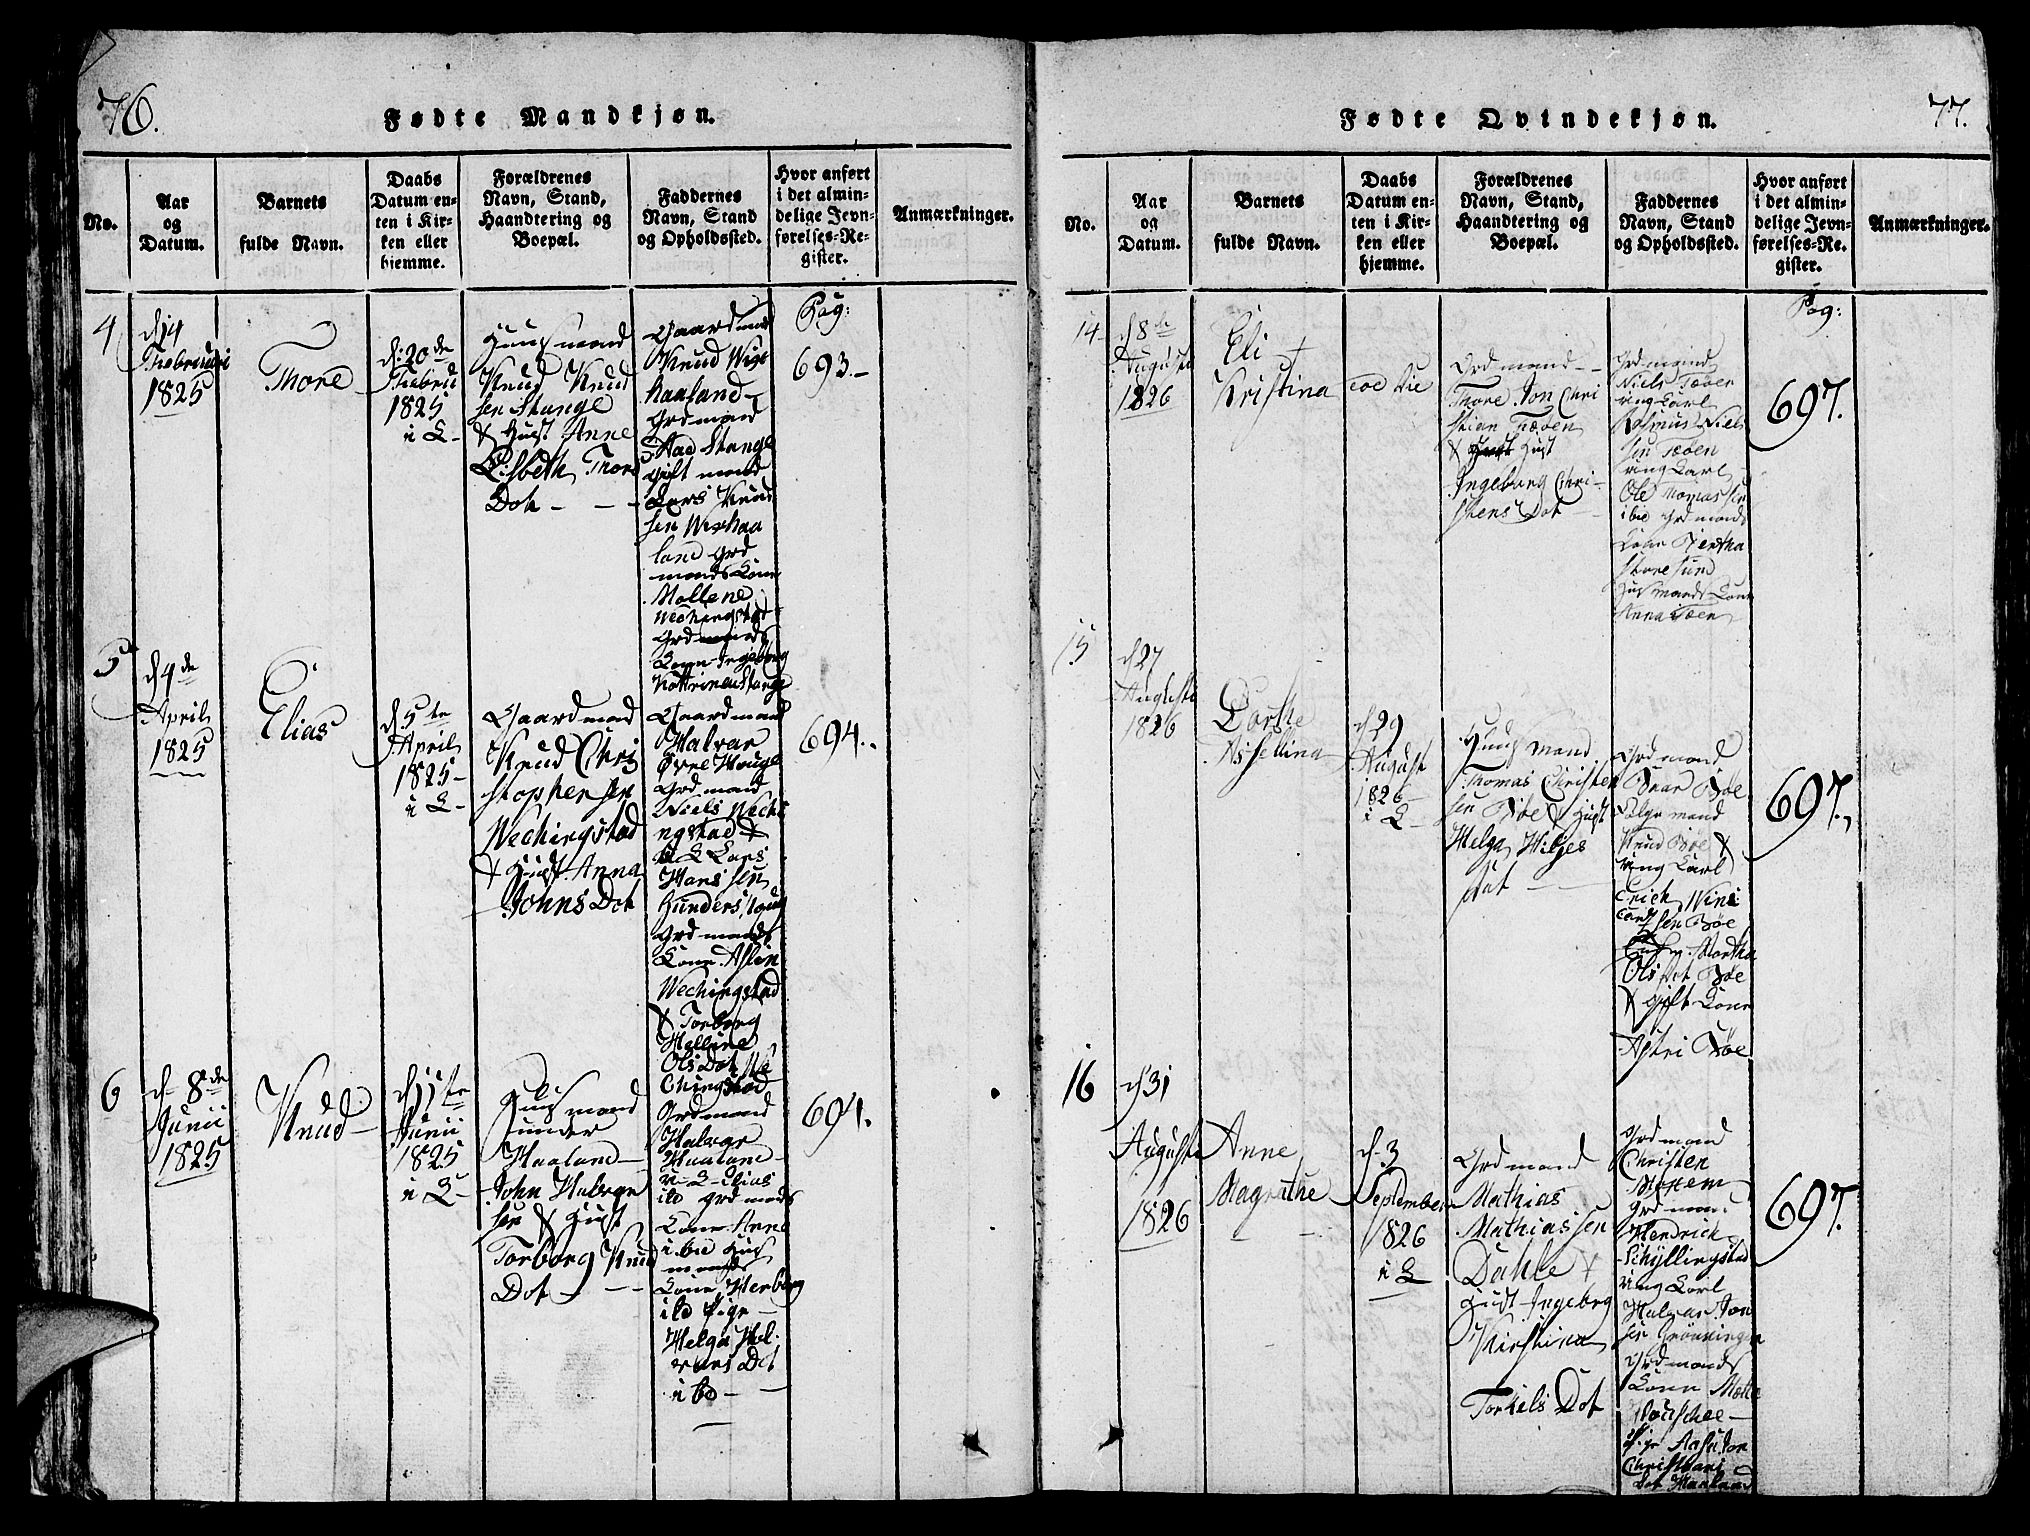 76.
Fødte Mandkjøn.
No.
Aar
og
Datum.
Barnets
fulde Navn.
Daabs
Datum en-
ten i Kir-
ken eller
hjemme.
Forældrenes
Navn, Stand,
Haandtering og
Boepæl.
Faddernes
Navn, Stand
og Opholdssted.
Hvor anført
i det almin-
delige Jevn-
førelses-Re-
gister.
Anmærkninger.
4
d 14
Febrauari
1825
Thore
d: 20de
Febru
1825
i K
Huusmand
Knud Knud
sen Stange
& Hust Anne
Lisbeth Thors
Dot
Gaardmand
Knud Wist
haaland
Grdmand
Aad Stange
gift mand
Lars Knud
sen Wishaa
land Grd
mands Kone
Mallene
Wechingstad
Grdmands
Kone Ingeborg
Kattrine Stange
Pag:
693.
5
d 4de
April
1825
Elias
d 5te
April
1825
i K
Gaardmand
Knud Chri
stophersen
Wechingstad
& Hust Anna
Johns Dot
Gaardmand
Halvar
Øvre Hauge
Grdmand
Niels Wechi
ngstad &
Lars
Hans sen
Grdmands
Kone Aslin
Wechingstad
& Torborg
Helline
Ols Dot We
chingstad
694.
6
d 8de
Junii
1825
Knud
d 11te
Junii
1825
i K
Huusmand
under
Haaland
John Halvar
sen & Hust
Torborg Knud
Dot
Grdmand
Halvar
Haaland
Elias
ibd Grdmands
Kone Anne
ibd Huus
mands
Kone Herborg
ibd Pige
Helga Hal
vars Dot
ibd
694.
77.
Fødte Qvindekjøn.
No.
Aar
og
Datum.
Barnets
fulde Navn.
Daabs
Datum en-
ten i Kir-
ken eller
hjemme.
Forældrenes
Navn, Stand,
Haandtering og
Boepæl.
Faddernes
Navn, Stand
og Opholdssted.
Hvor anført
i det almin-
delige Jevn-
førelses-Re-
gister.
Anmærkninger.
14
d 8de
Augusti
1826
Eli +
Kristina
eod Die
Grdmand
Thore Jon Chri
stian Tøen
& Hust
Ingeborg Chri
stens Dot
Grdmand
Niels Tøen
ung Karl
Rasmus Niels
sen Tøen
ung Karl
Ole Thomassen
ibd Grdmands
Kone Bertha
Storesund
Huusmands Kone
Anna Tøen
Pag:
697.
15
d 27
Augusti
1826
Dorthe
Assellina
d 29
August
1826
i K
Huusmand
Thomas Christen
sen Bøe & Hust
Helga Wiljes
Dat
Grdmand
Bøe
Følgemand
Knud Bøe &
ung Karl
Erich
sen Bøe
Martha
Ols Dat Bøe
& gift Kone
Astri Bøe
697.
16
d 31
Augusti
1826
Anne
Magrethe
d 3
September
1826
i K
Grdmand
Mathias
Mathiassen
Dahle &
Hust Ingeborg
Kirstina
Torkels Dot
Grdmand
Christen
Grdmand
Hendrich
Schyllingstad
ung Karl
Halvar Jon
sen Grønningen
Grdmands
Kone Mette
Pige
Christians
Dot
697.